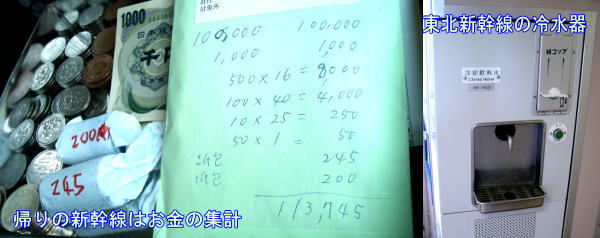 東北新幹線の冷水器
1000
200
245
対象外
100,000 100,000
1,000 1,000
500 × 16 = 8000
100 × 40 = 4,000
10 × 25 = 250
50 × 1 = 50
245
200
113,745
紙コップ
冷却飲料水
Chilled Water
帰りの新幹線はお金の集計